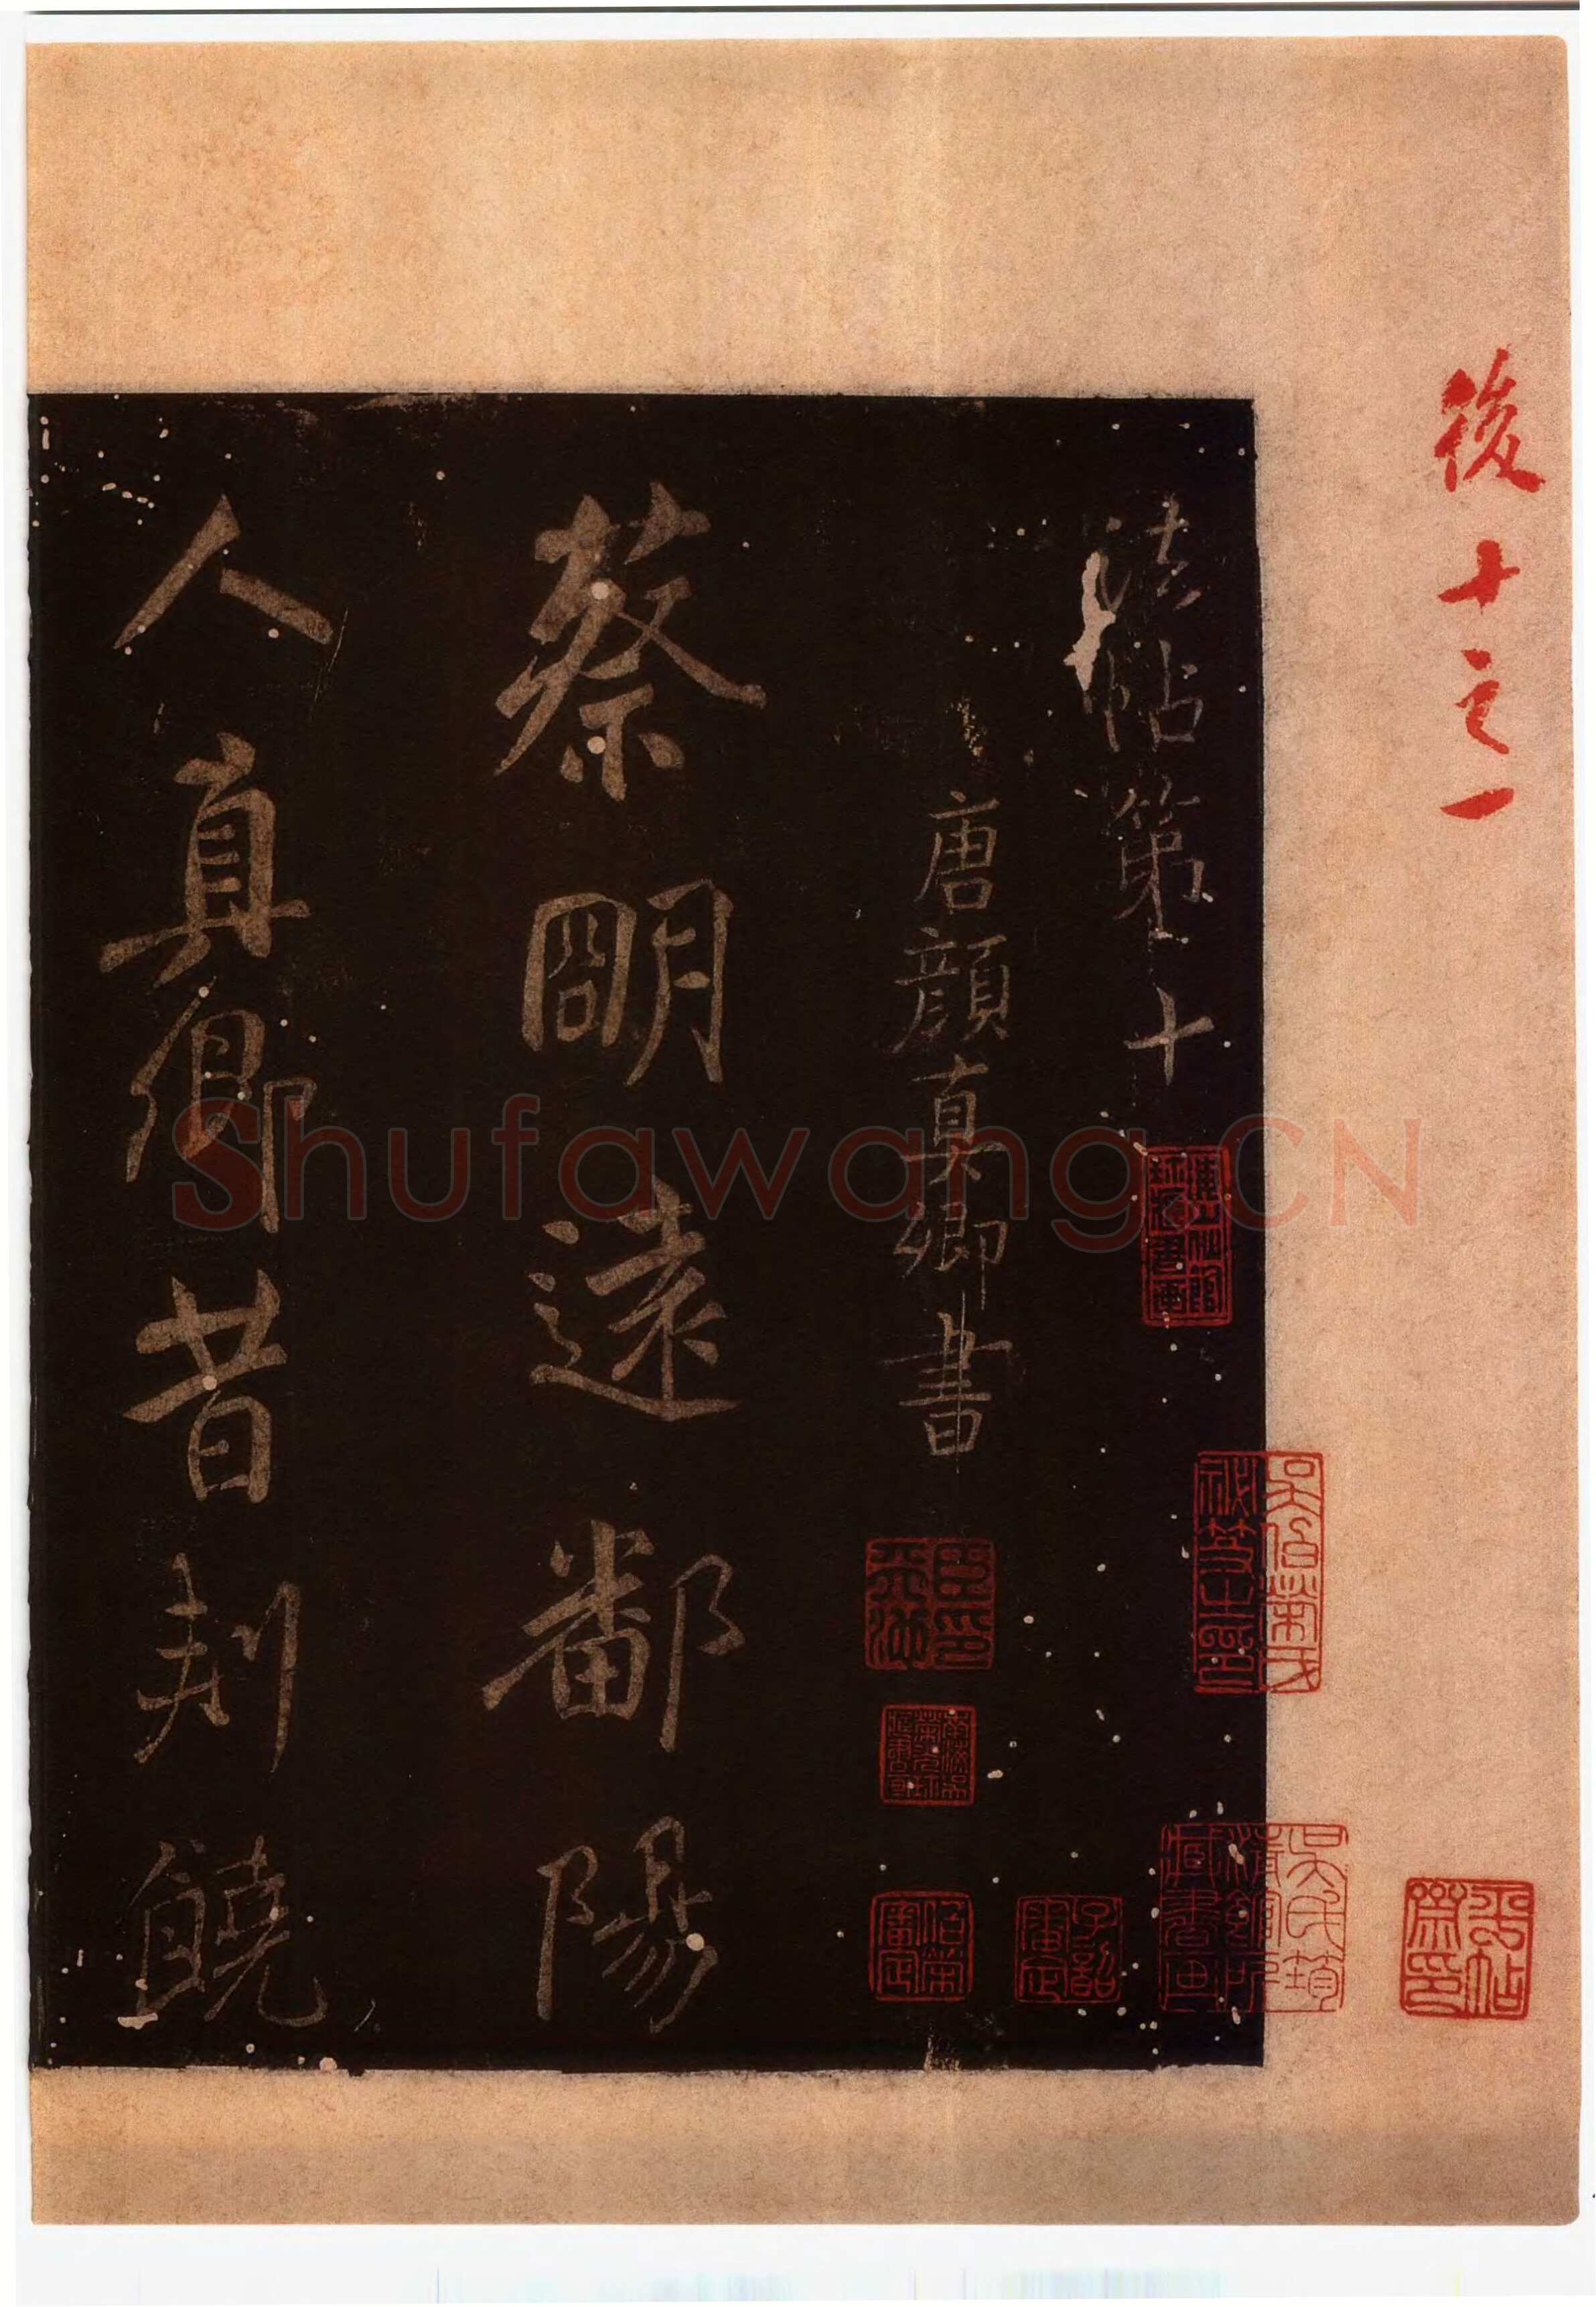 後十之一
法帖第十
唐顏真卿書
蔡明遠鄱陽
人真卿昔刺饒
Shufawang.CN